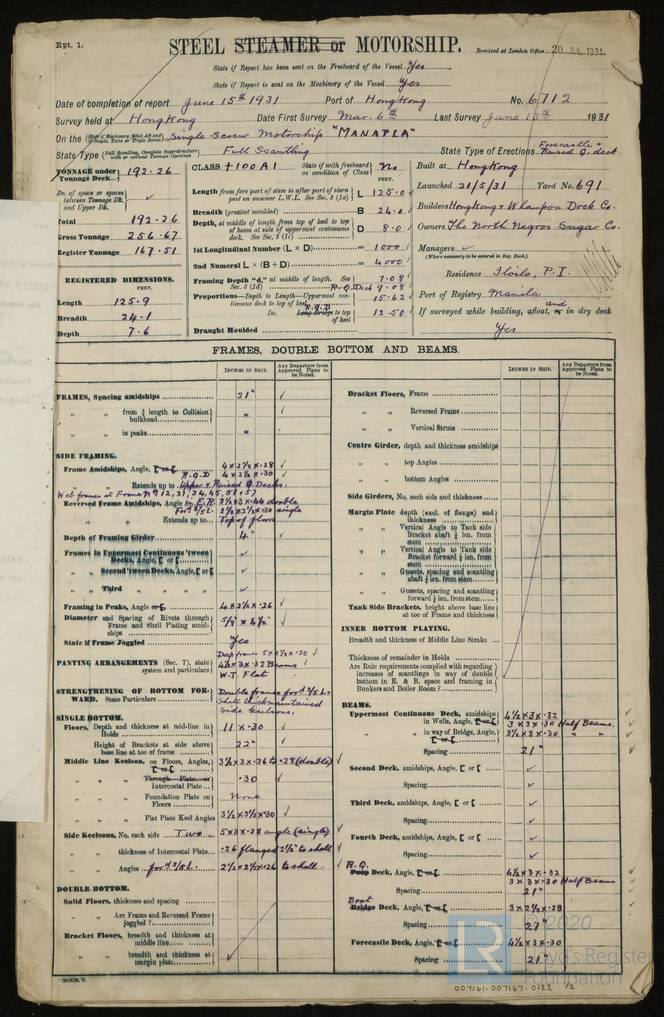 Rpt. 1.
STEEL STEAMER or MOTORSHIP.
Received at London Office 20 JUL 1931
State if Report has been sent on the Freeboard of the Vessel Yes
State if Report is sent on the Machinery of the Vessel Yes
Date of completion of report June 15th 1931 Port of Hong Kong No. 6712
Survey held at Hong Kong Date First Survey Mar. 6th Last Survey June 15th 1931
On the Single Screw Motorship "MANAPLA"
State Type Full Scantling State Type of Erections Forecastle + Raised Q. deck.
TONNAGE under Tonnage Deck 192.26
Do. of space or spaces between Tonnage Dk. and Upper Dk.
Total 192.26
Gross Tonnage 256.67
Register Tonnage 167.51
REGISTERED DIMENSIONS.
FEET.
Length 125.9
Breadth 24.1
Depth 7.6
CLASS +100A1 State if with freeboard as condition of Class No
FEET.
Length from fore part of stem to after part of stern post on summer L.W.L. See Sec. 3 (1a) L 125.0
Breadth (greatest moulded) B 24.0
Depth, at middle of length from top of keel to top of beam at side of uppermost continuous deck. See Sec. 3 (1c) D 8.0
1st Longitudinal Number (L × D) = 1000
2nd Numeral L × (B + D) = 4000
Framing Depth "d," at middle of length. See Sec. 3 (1d) 7.08
R.Q. Deck 9.08
Proportions—Depth to Length—Uppermost continuous deck to top of keel 15.62
Do. Long Bridge to top of keel 12.50
Draught Moulded
Built at Hong Kong
Launched 21/5/31 Yard No. 691
Builders Hongkong & Whampoa Dock Co.
Owners The North Negros Sugar Co.
Managers
(Where necessary to be entered in Reg. Book.)
Residence Iloilo, P.I.
Port of Registry Manila
If surveyed while building, afloat, or and in dry dock
Yes
FRAMES, DOUBLE BOTTOM AND BEAMS.
INCHES IN SHIP.
Any Departure from Approved Plans to be Noted.
FRAMES, Spacing amidships 21"
" " from ⅕ length to Collision bulkhead "
" " in peaks "
SIDE FRAMING.
Frame Amidships, Angle, [ or [ 4 × 2½ × .28
R.Q.D 4 × 2½ × .30
" " Extends up to Upper & Raised Q. Decks.
Web frames at Frame Nos 12, 21, 34, 45, 51 + 57
Reversed Frame Amidships, Angle
" " Extends up to Top of floors
Depth of Framing Girder 4"
Frames in Uppermost Continuous 'tween Decks, Angle, [ or [
" " Second 'tween Decks, Angle, [ or [
" " Third " "
Framing in Peaks, Angle or [ 4 × 2½ × .26
Diameter and Spacing of Rivets through Frame and Shell Plating amidships 5/8" × 4½"
State if Frame Joggled Yes
PANTING ARRANGEMENTS (Sec. 7), state system and particulars
Deep frames 5 × 2½ × .30
4½ × 3 × .32 Beams
W.T. Flat
STRENGTHENING OF BOTTOM FORWARD. State Particulars
Double frames ford 3/5 L.
Side keelsons.
SINGLE BOTTOM.
Floors, Depth and thickness at mid-line in Holds 11 × .30
Height of Brackets at side above base line at toe of frame 22"
Middle Line Keelson, on Floors, Angles, [ or [ 3½ × 3 × .36 to .28 (double)
" " Through Plate or Intercostal Plate .30
" " Foundation Plate on Floors None
" " Flat Plate Keel Angles 3½ × 3½ × .30
Side Keelsons, No. each side Two 5 × 3 × .28 angle (single)
" " thickness of Intercostal Plate .26 flanged 2½" to shell
" " Angles ford 3/5 L 2½ × 2½ × .26 to shell.
DOUBLE BOTTOM.
Solid Floors, thickness and spacing
" " Are Frame and Reversed Frame joggled?
Bracket Floors, breadth and thickness at middle line
" " breadth and thickness at margin plate
INCHES IN SHIP.
Any Departure from Approved Plans to be Noted.
Bracket Floors, Frame
" " Reversed Frame
" " Vertical Struts
Centre Girder, depth and thickness amidships
" " top Angles
" " bottom Angles
Side Girders, No. each side and thickness
Margin Plate depth (excl. of flange) and thickness
" " Vertical Angle to Tank side Bracket abaft ¼ len. from stem
" " Vertical Angle to Tank side Bracket forward ¼ len. from stem
" " Gussets, spacing and scantling abaft ¼ len. from stem
" " Gussets, spacing and scantling forward ¼ len. from stem
Tank Side Brackets, height above base line at toe of Frame and thickness
INNER BOTTOM PLATING.
Breadth and thickness of Middle Line Strake
Thickness of remainder in Holds
Are Rule requirements complied with regarding increases of scantlings in way of double bottom in E. & B. space and framing in Bunkers and Boiler Room?
BEAMS.
Uppermost Continuous Deck, amidships in Wells, Angle, [ or [ 4½ × 3 × .32
3 × 3 × .30 Half Beams.
" " in way of Bridge, Angle, [ or [ 3½ × 3 × .30 " "
Spacing 21"
Second Deck, amidships, Angle, [ or [
Spacing
Third Deck, amidships, Angle, [ or [
Spacing
Fourth Deck, amidships, Angle, [ or [
Spacing
R.Q.
Poop Deck, Angle, [ or [ 4½ × 3 × .32
3 × 3 × .30 Half Beams
Spacing 21"
Boat
Bridge Deck, Angle, [ or [ 3 × 2½ × .28
Spacing 27"
Forecastle Deck, Angle, [ or [ 4½ × 3 × .30
Spacing 21"
© 2020
Lloyd's Register
Foundation
LR
007161-007167-0122 1/2